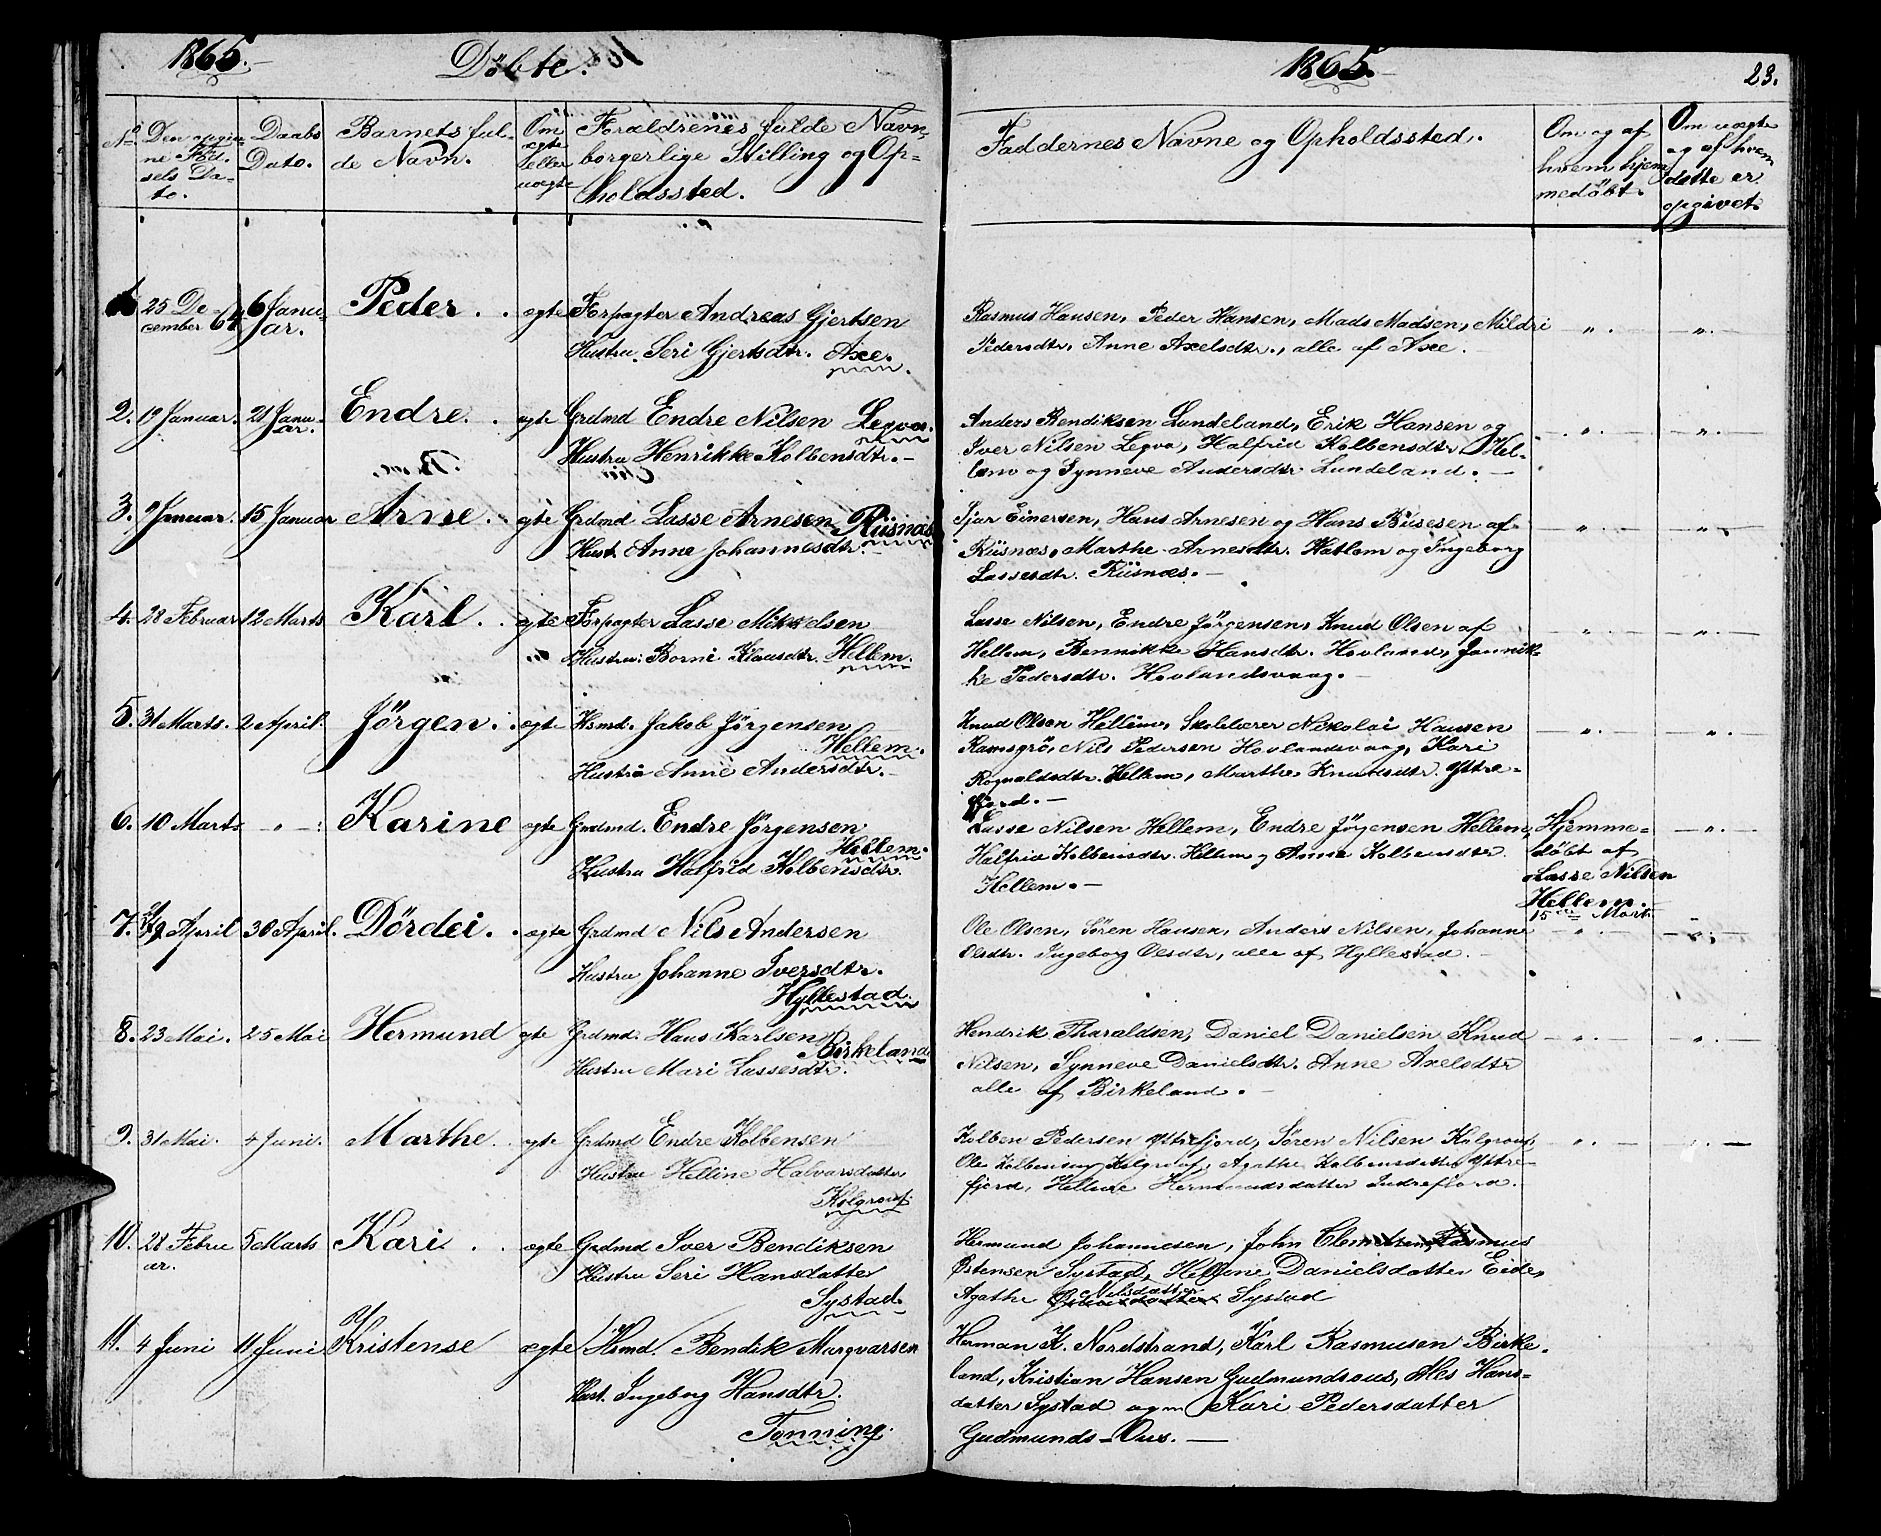 1865.
Döbte.
No
Den opgivne Födselsdato.
Daabs Dato.
Barnets fulde Navn.
Om ægte eller uægte
Forældrenes fulde Navn,
borgerlige Stilling og Op-
holdssted.
1. 25 December 64 6 Januar. Peder. ægte Forpagter Andreas Gjertsen
Hustru Seri Gjertsdtr. Axe.
2. 19 Januar. 21 Januar. Endre. ægte Grdmd Endre Nilsen Legva.
Hustru Henrikke Kolbensdtr.
3. 9 Januar. 15 Januar Arne. ægte Grdmd Lasse Arnesen Riisnæs
Hust. Anne Johannesdtr.
4. 28 Februar 12 Marts Karl. ægte Forpagter Lasse Mikkelsen
Hustru: Borni Klausdtr. Hellem.
5. 31 Marts. 2 April. Jörgen. ægte Hsmd. Jakob Jörgensen
Hellem.
Hustru Anne Andersdtr.
6. 10 Marts - " - Karine ægte Grdmd. Endre Jörgensen
Hellem.
Hustru Halfrid Kolbensdtr.
7. April 30 April. Dördei. ægte Grdmd Nils Andersen
Hustru Johanne Iversdtr.
Hyllestad.
8. 23 Mai. 25 Mai Hermund ægte Grdmd. Hans Karlsen
Birkeland
Hustru Mari Lassesdtr.
9. 31 Mai. 4 Juni. Marthe. ægte Grdmd Endre Kolbensen
Hustru Helline Halvarsdatter
Kolgrov
10. 28 Februar. 5 Marts Kari. ægte Grdmd Iver Bendiksen
Hustru Seri Hansdatter
Systad.
11. 4 Juni 11 Juni Kristense ægte Hsmd. Bendik Morgvarsen
Hust. Ingeborg Hansdtr.
Tonning.
1865.
23.
Faddernes Navne og Opholdssted.
Om og af
hvem hjem
medöbt.
Om uægte
og af hvem
dette er
opgivet.
Rasmus Hansen, Peder Hansen, Mads Madsen, Mildri
Pedersdtr, Anne Axelsdtr., alle af Axe.
Anders Bendiksen Lundeland, Erik Hansen og
Iver Nilsen Legva, Halfrid Kolbensdtr Hel-
lem og Synneve Andersdtr Lundeland.
Einersen, Hans Arnesen og Hans af
Riisnæs, Marthe Arnesdtr. Hatlem og Ingeborg
Lassesdtr. Riisnæs.
Lasse Nilsen, Endre Jörgensen, Knud Olsen af
Hellem, Bennikke Hansdtr. Hovland, Jannik-
ke Pedersdtr. Hovlandsvaag.
Knud Olsen Hellem, Skolelærer Nikolai Hansen
Ramsgrö, Nils Pedersen Hovlandsvaag, Kari
Rognaldsdtr. Hellem, Marthe Knudsdtr. Yttre-
fjord.
Lasse Nilsen Hellem, Endre Jörgensen Hellem,
Halfrid Kolbensdtr. Hellem og Anne Kolbensdtr.
Hellem.
Hjemme-
döbt af
Lasse Nilsen
Hellem.
15de Mart
Ole Olsen, Sören Hansen, Anders Nilsen, Johanne
Olsdtr. Ingeborg Olsdtr, alle af Hyllestad.
Hendrik Tharaldsen, Daniel Danielsen Knud
Nilsen, Synneve Danielsdtr. Anne Axelsdtr
alle af Birkeland.
Kolben Pedersen Yttrefjord, Sören Nilsen Kolgrov,
Ole Kolbensen Kolgrov, Agathe Kolbensdatter Yttre-
fjord, Helline Hermundsdatter Indrefjord.
Hermund Johannesen, John Clemetsen, Rasmus
Östensen Systad, Helline Danielsdatter Eide,
Nilsdatter
Agathe Systad
Herman K. Nordstrand, Karl Rasmusen Birke-
land, Kristian Hansen Gudmundsous, Ales Hans-
datter Systad og Kari Pedersdatter
Gudmunds-Ous.